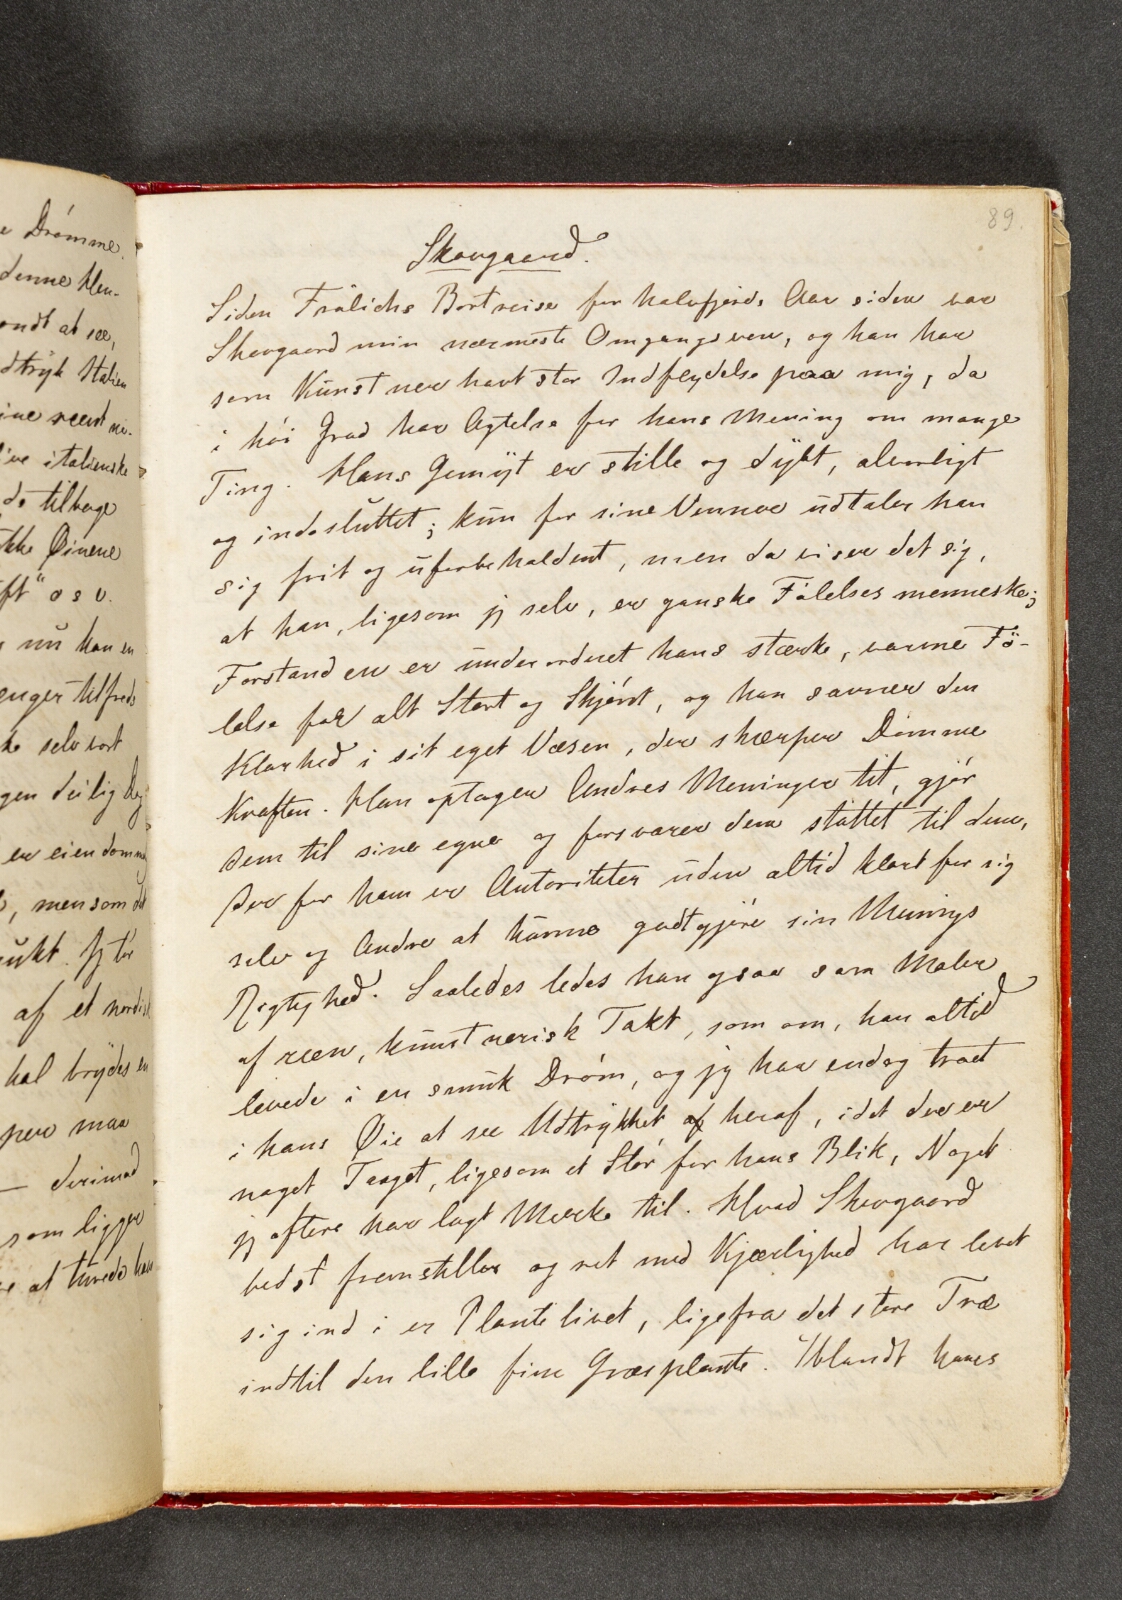 e Drømme.
denne Hen-
ondt at see,
dtryk Italien
ine
ive italienske
de tilbage
ikke Øinene
ft" o s v.
nu kan en
enger tilfreds
selv vort
gen deilig
er eiendomme
, men som det
ukt. Jeg tör
af et nordi
kal brydes en
per maa
— derimod
som ligger
at turde
89.
Skovgaard.
Siden Frölichs Bortreise for halvfjerds Aar siden var
Skovgaard min nærmeste Omgangsven, og han har
som Kunstner havt stor Indflydelse paa mig, da
i høi Grad har Agtelse for hans Mening om mange
Ting. Hans Gemyt er stille og dybt, alvorligt
og indesluttet; kun for sine Venner udtaler han
sig frit og uforbeholdent, men da viser det sig,
at han, ligesom jeg selv, er ganske Følelsesmenneske;
Forstanden er underordnet hans stærke, varme Fö-
lelse for alt Stort og Skjönt, og han savner den
Klarhed i sit eget Væsen, der skærper Dømme
Kraften. Han optager Andres Meninger tit, gjör
dem til sine egne og forsvarer dem støttet til dem,
der for ham er Autoriteter uden altid klart for sig
selv og Andre at kunne godtgjöre sin Menings
Rigtighed. Saaledes ledes han ogsaa som Maler
af reen, kunstnerisk Takt, som om, han altid
levede i en smuk Drøm, og jeg har endog troet
i hans Øie at see Udtrykket af heraf, idet der er
noget Taaget, ligesom et Slör for hans Blik, Noget
jeg oftere har lagt Mærke til. Hvad Skovgaard
bedst fremstiller og ret med Kjærlighed har levet
sig ind i er Plantelivet, ligefra det store Træ
indtil den lille fine Græsplante. Iblandt hans